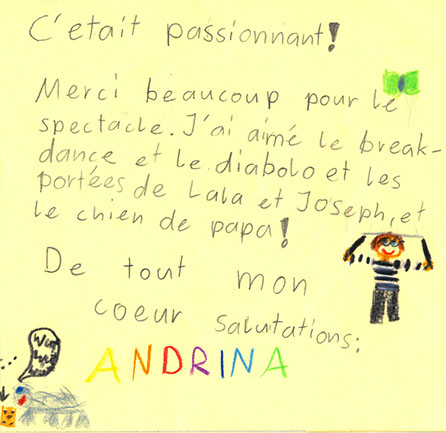 C'etait passionnant!
Merci beaucoup pour le
spectacle. J'ai aimé le break-
dance et le diabolo et les
portées de Lala et Joseph, et
le chien de papa!
De tout mon
coeur salutations:
ANDRINA